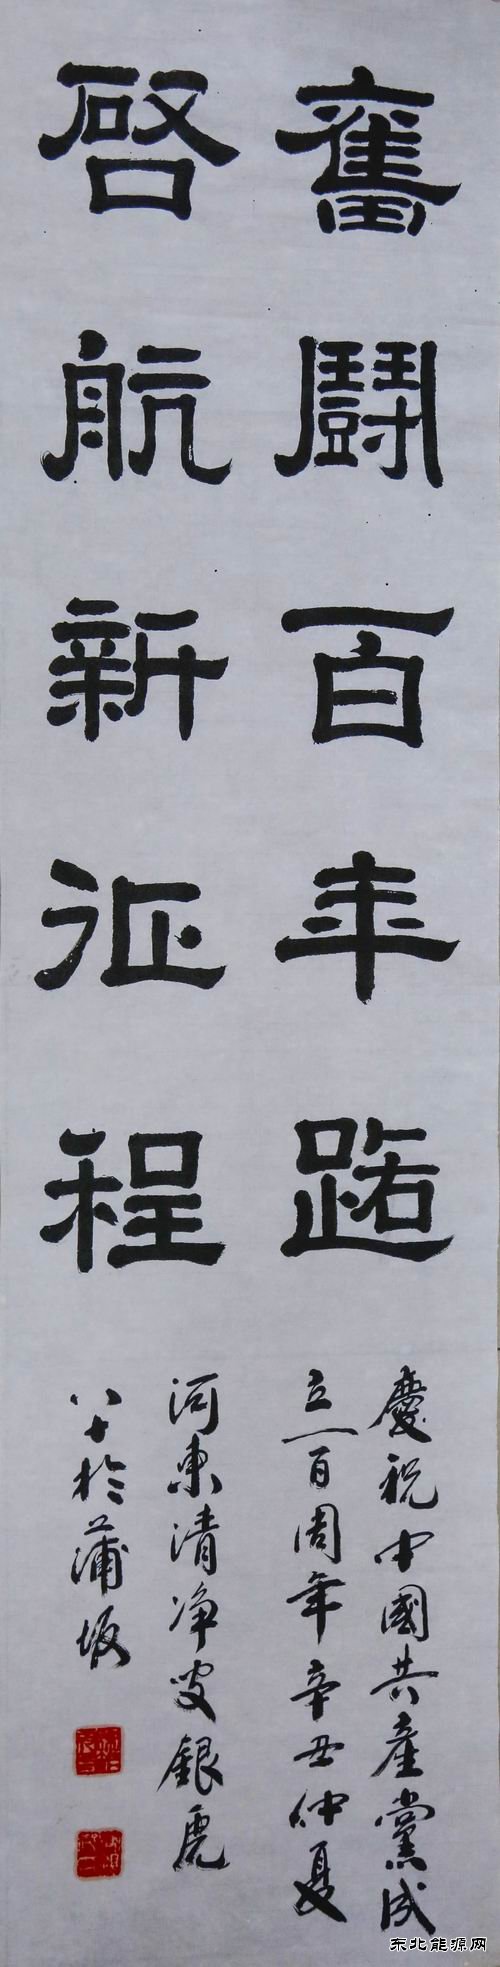 奮鬪百年路
啓航新征程
慶祝中國共產黨成
立一百周年辛丑仲夏
河東清净叟銀虎
八十於蒲坂
东北能源网